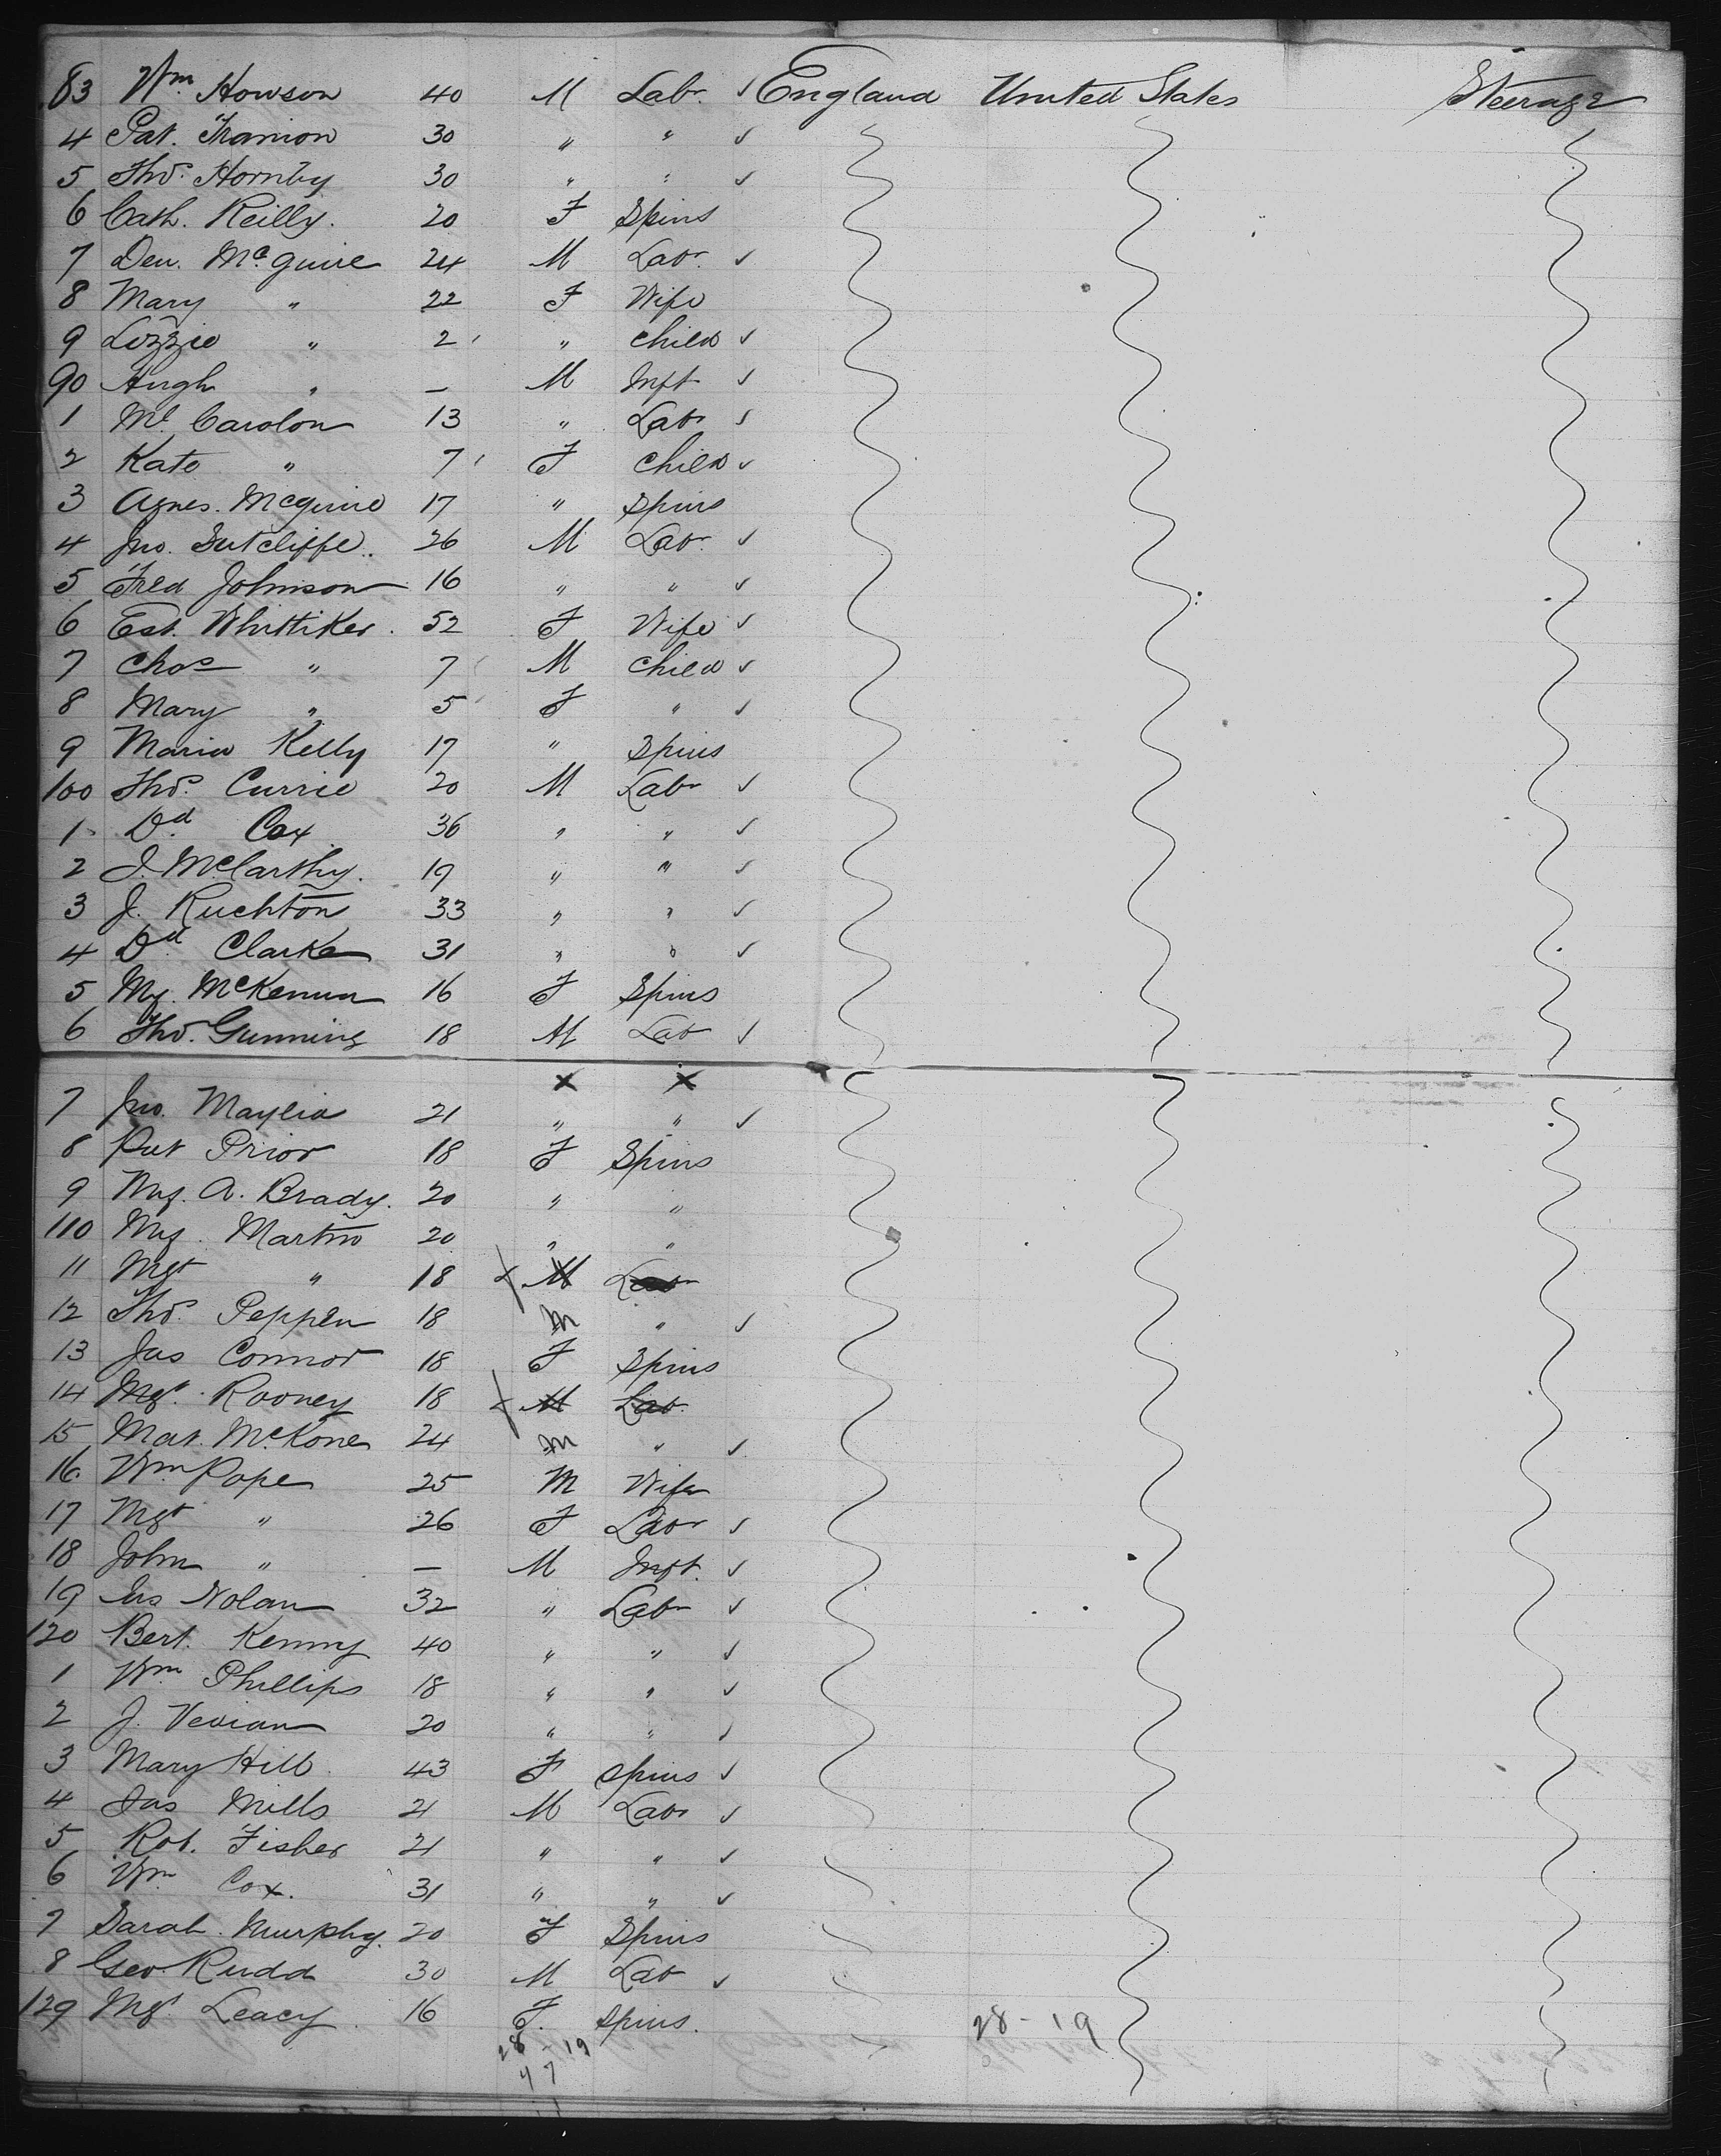 83 Wm. Howson 40 M Labr. ✓ England United States Steerage
4 Pat. Franion 30 " " ✓
5 Thos. Hornby 30 " " ✓
6 Cath. Reilly. 20 F Spins
7 Den. McGuire 24 M Labr. ✓
8 Mary " 22 F Wife
9 Lizzie " 2 " Child ✓
90 Hugh " — M Inft ✓
1 Ml. Carolon 13 " Labr ✓
2 Kate " 7 F Child ✓
3 Agnes. McGuire 17 " Spins
4 Jno. Sutcliffe. 26 M Labr. ✓
5 Fred Johnson 16 " " ✓
6 Est. Whittiker. 52 F Wife ✓
7 Chas " 7 M Child ✓
8 Mary " 5 F " ✓
9 Maria Kelly 17 " Spins
100 Thos. Currie 20 M Labr ✓
1 Dd. Cox 36 " " ✓
2 J. McCarthy. 19 " " ✓
3 J. Ruchton 33 " " ✓
4 Dd. Clarke 31 " " ✓
5 My. McKennn 16 F Spins
6 Thos. Gunning 18 M Lab ✓
x x
7 Jno. Maylia 21 " " ✓
8 Pat Prior 18 F Spins
9 My. A. Brady. 20 " "
110 My. Martin 20 " "
11 Mgt " 18 x M Lab
12 Thos. Peppen 18 M " ✓
13 Jas Connor 18 F Spins
14 Mgt. Rooney 18 x M Lab.
15 Mat. McKone 24 M " ✓
16. Wm. Pope 25 M Wife
17 Mgt " 26 F Labr ✓
18 John " — M Inft. ✓
19 Jas Nolan 32 " Labr ✓
120 Bert. Kenny 40 " " ✓
1 Wm. Phillips 18 " " ✓
2 J. Vevian 20 " " ✓
3 Mary Hill. 43 F Spins ✓
4 Jas Mills 21 M Labr ✓
5 Rob. Fisher 21 " " ✓
6 Wm Cox. 31 " " ✓
7 Sarah. Murphy. 20 F Spins
8 Geo. Rudd 30 M Lab ✓
129 Mgt. Leacy. 16 F. Spins.
28 - 19 28 - 19
47